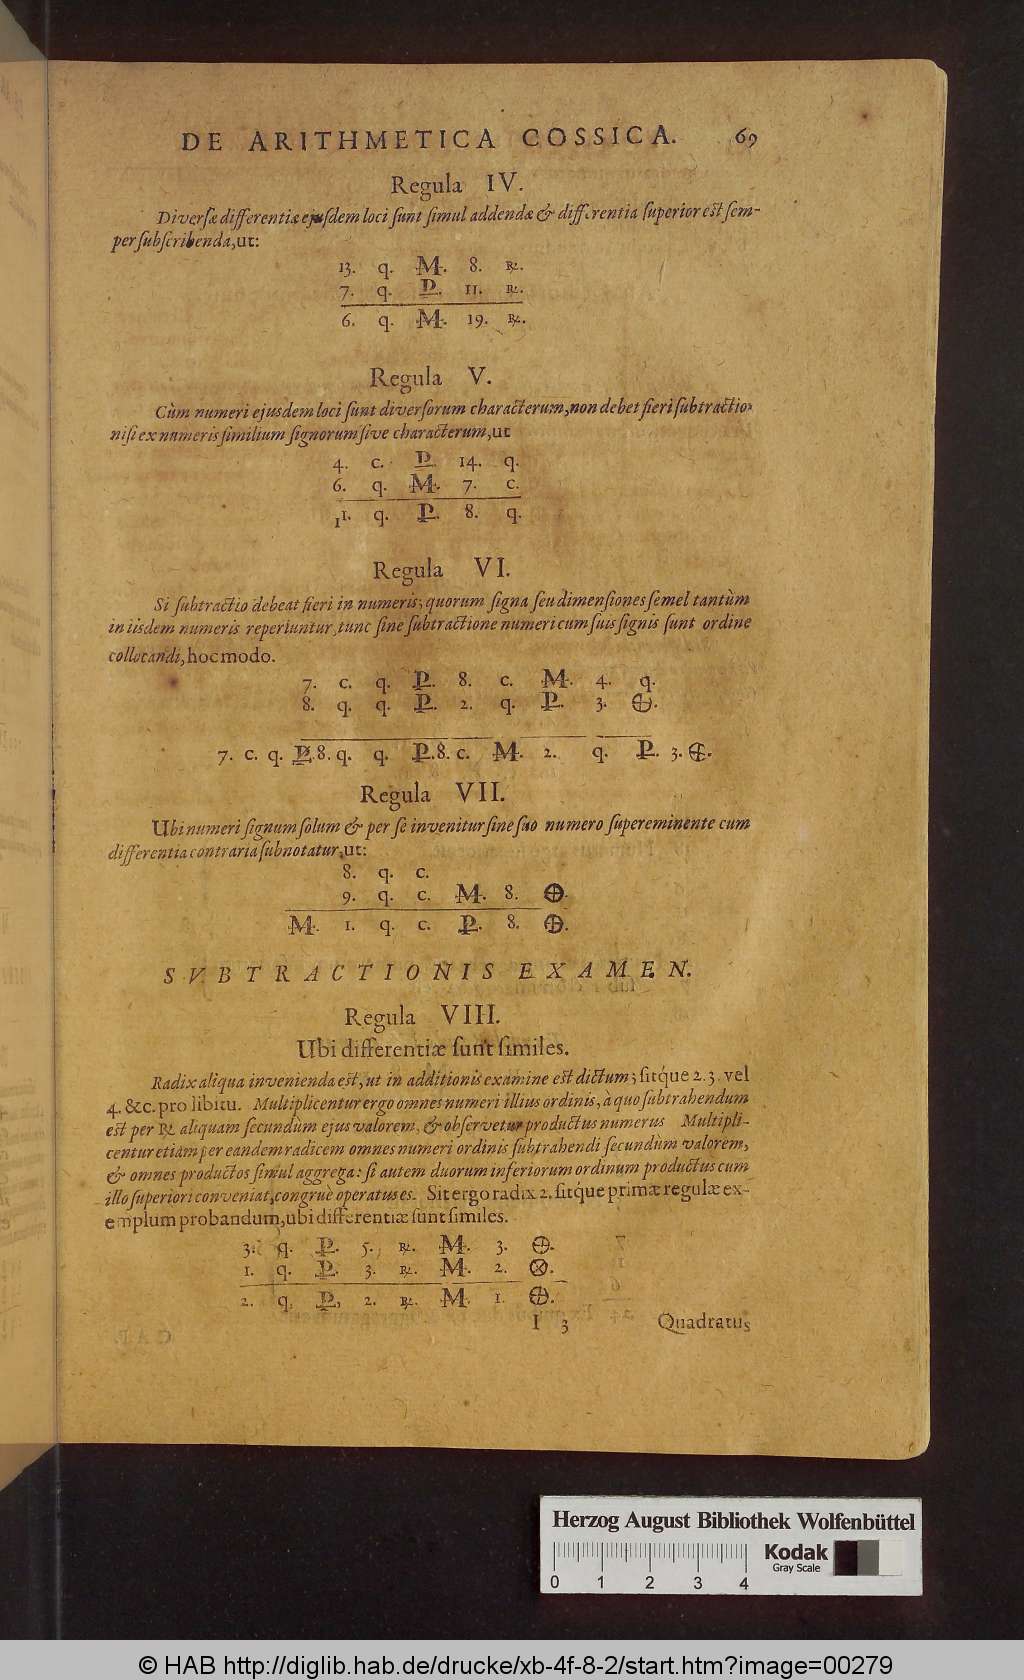 DE ARITHMETICA COSSICA. 69
Regula IV.
Diversæ differentiæ ejusdem loci sunt simul addendæ & differentia superior est sem-
per subscribenda, ut:
13. q. M. 8. ℞.
7. q. P. 11. ℞.
6. q. M. 19. ℞.
Regula V.
Cùm numeri ejusdem loci sunt diversorum characterum, non debet fieri subtractio,
nisi ex numeris similium signorum sive characterum, ut
4. c. P. 14. q.
6. q. M. 7. c.
11. q. P. 8. q.
Regula VI.
Si subtractio debeat fieri in numeris, quorum signa seu dimensiones semel tantùm
in iisdem numeris reperiuntur, tunc sine subtractione numeri cum suis signis sunt ordine
collocandi, hoc modo.
7. c. q. P. 8. c. M. 4. q.
8. q. q. P. 2. q. P. 3. ⊕.
7. c. q. P. 8. q. q. P. 8. c. M. 2. q. P. 3. ⊕.
Regula VII.
Ubi numeri signum solum & per se invenitur sine suo numero supereminente cum
differentia contraria subnotatur, ut:
8. q. c.
9. q. c. M. 8. ⊕.
M. 1. q. c. P. 8. ⊕.
SVBTRACTIONIS EXAMEN.
Regula VIII.
Ubi differentiæ sunt similes.
Radix aliqua invenienda est, ut in additionis examine est dictum; sitq́ue 2. 3. vel
4. &c. pro libitu. Multiplicentur ergo omnes numeri illius ordinis, à quo subtrahendum
est per ℞ aliquam secundùm ejus valorem, & observetur productus numerus Multipli-
centur etiam per eandem radicem omnes numeri ordinis subtrahendi secundùm valorem,
& omnes productos simul aggrega: si autem duorum inferiorum ordinum productus cum
illo superiori conveniat, congruè operatus es. Sit ergo radix 2. sitq́ue primæ regulæ ex-
emplum probandum, ubi differentiæ sunt similes.
3. q. P. 5. ℞. M. 3. ⊕.
1. q. P. 3. ℞. M. 2. ⊗.
2. q. P. 2. ℞. M. 1. ⊕.
I 3 Quadratus
Herzog August Bibliothek Wolfenbüttel
0 1 2 3 4
Kodak
Gray Scale
© HAB http://diglib.hab.de/drucke/xb-4f-8-2/start.htm?image=00279